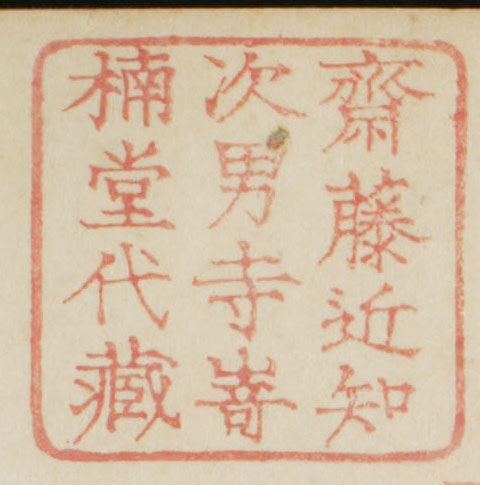 齋藤近知
次男寺嵜
楠堂代藏